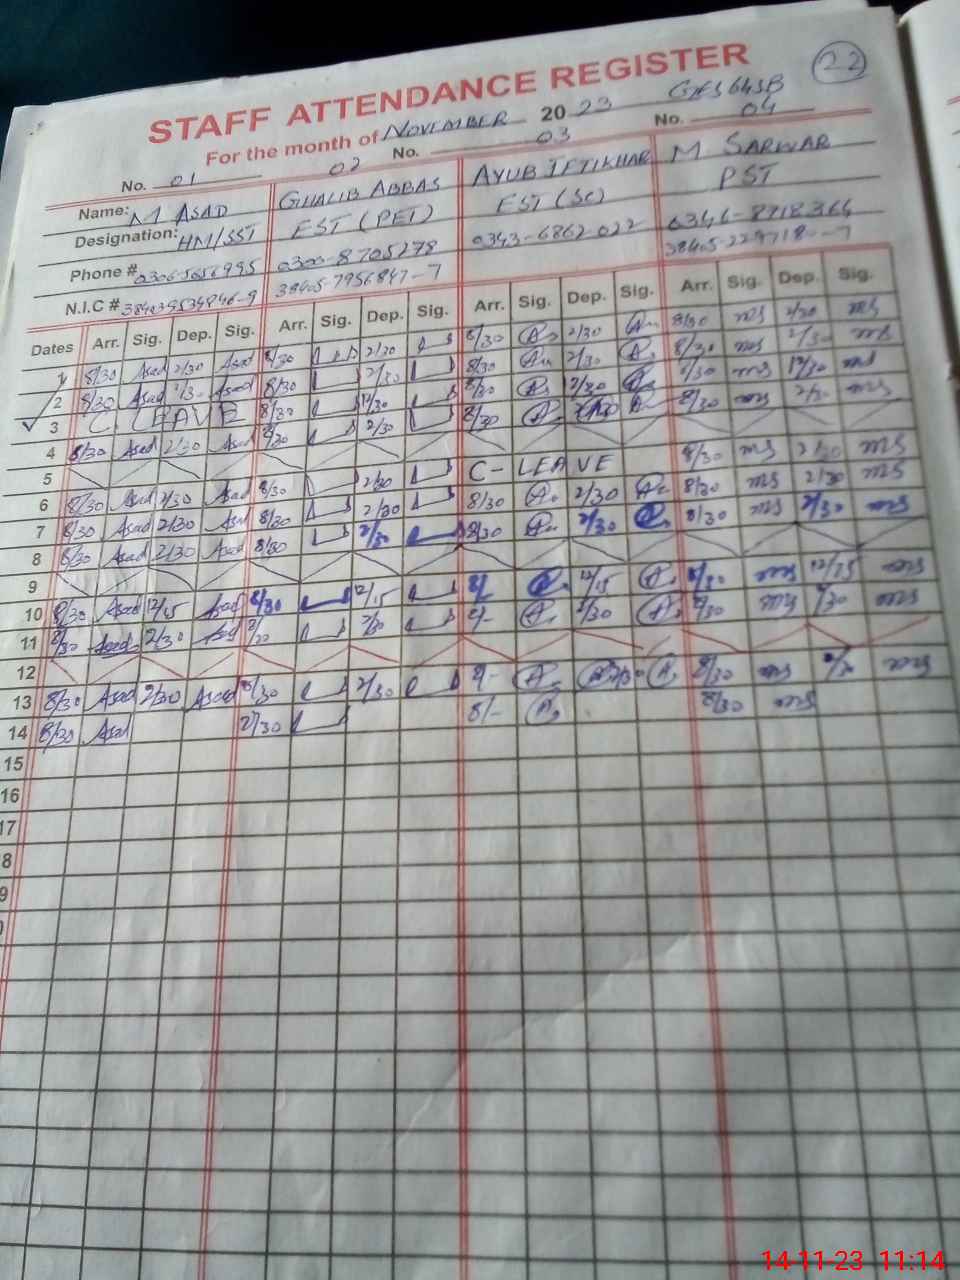 22
STAFF ATTENDANCE REGISTER
For the month of NOVEMBER 2023
No. 01 02 No. 03 No. 04
Name: M ASAD GHALIB ABBAS AYUB IFTIKHAR M SARWAR
Designation: HM/SST EST (PET) EST (SC) PST
Phone # 0300-8705278 0343-6862022 0346-8718364
N.I.C # 38405-7956847-7
Dates Arr. Sig. Dep. Sig. Arr. Sig. Dep. Sig. Arr. Sig. Dep. Sig. Arr. Sig. Dep. Sig.
1 8/30 Asad 2/30 Asad 8/30 2/30 8/30 2/30 8/30 ms 2/30 ms
2 8/30 Asad Asad 8/30 2/30 8/30 2/30 8/30 ms 2/30 ms
3 C. LEAVE 8/30 12/30 8/30 12/30 8/30 ms 12/30 ms
4 8/30 Asad 2/30 Asad 8/30 2/30 8/30 8/30 ms 2/30 ms
5
6 8/30 Asad 2/30 Asad 8/30 2/30 C-LEAVE 8/30 ms 2/30 ms
7 8/30 Asad 2/30 Asad 8/30 2/30 8/30 2/30 8/30 ms 2/30 ms
8 8/30 Asad 2/30 Asad 8/30 2/30 8/30 2/30 8/30 ms 2/30 ms
9
10 8/30 Asad 12/15 Asad 8/30 12/15 8/ 12/15 8/30 12/15
11 8/30 Asad 2/30 Asad 8/30 2/30 8/- 2/30 8/30 2/30
12
13 8/30 Asad 2/30 Asad 8/30 2/30 8/- 2/30 8/30
14 8/30 Asad 8/- 8/30
15
16
17
8
9
14-11-23 11:14